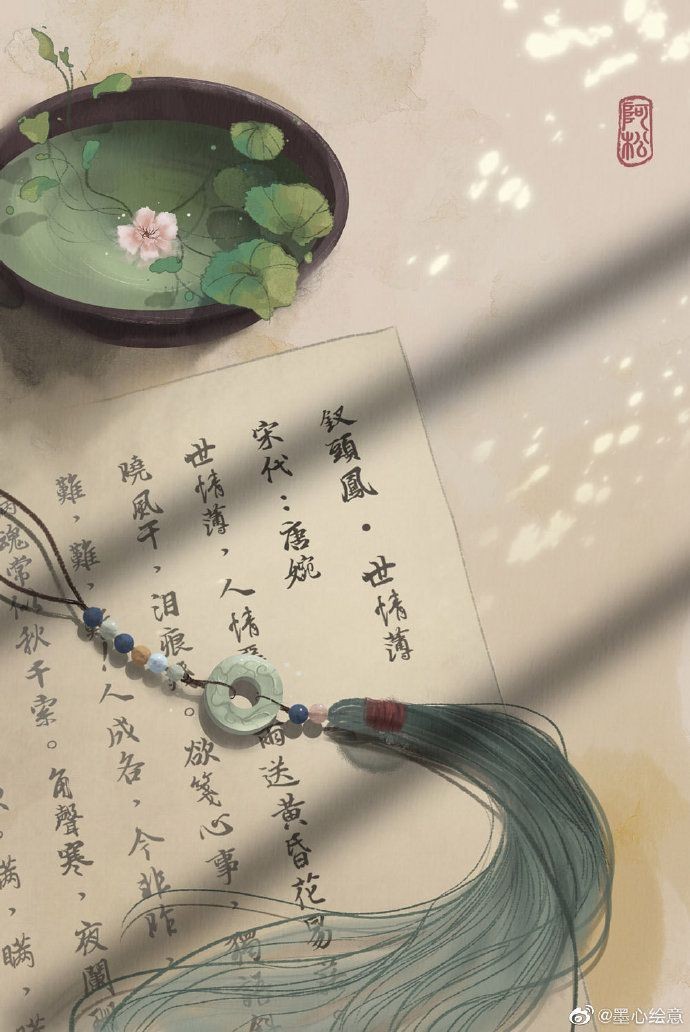 阿松
釵頭鳳·世情薄
宋代：唐婉
世情薄，人情 雨送黃昏花易
曉風干，泪痕 。欲箋心事，獨語
難，難， ！人成各，今非昨，
魂常似秋千索。角聲寒，夜闌
瞞，瞞，
@墨心绘意